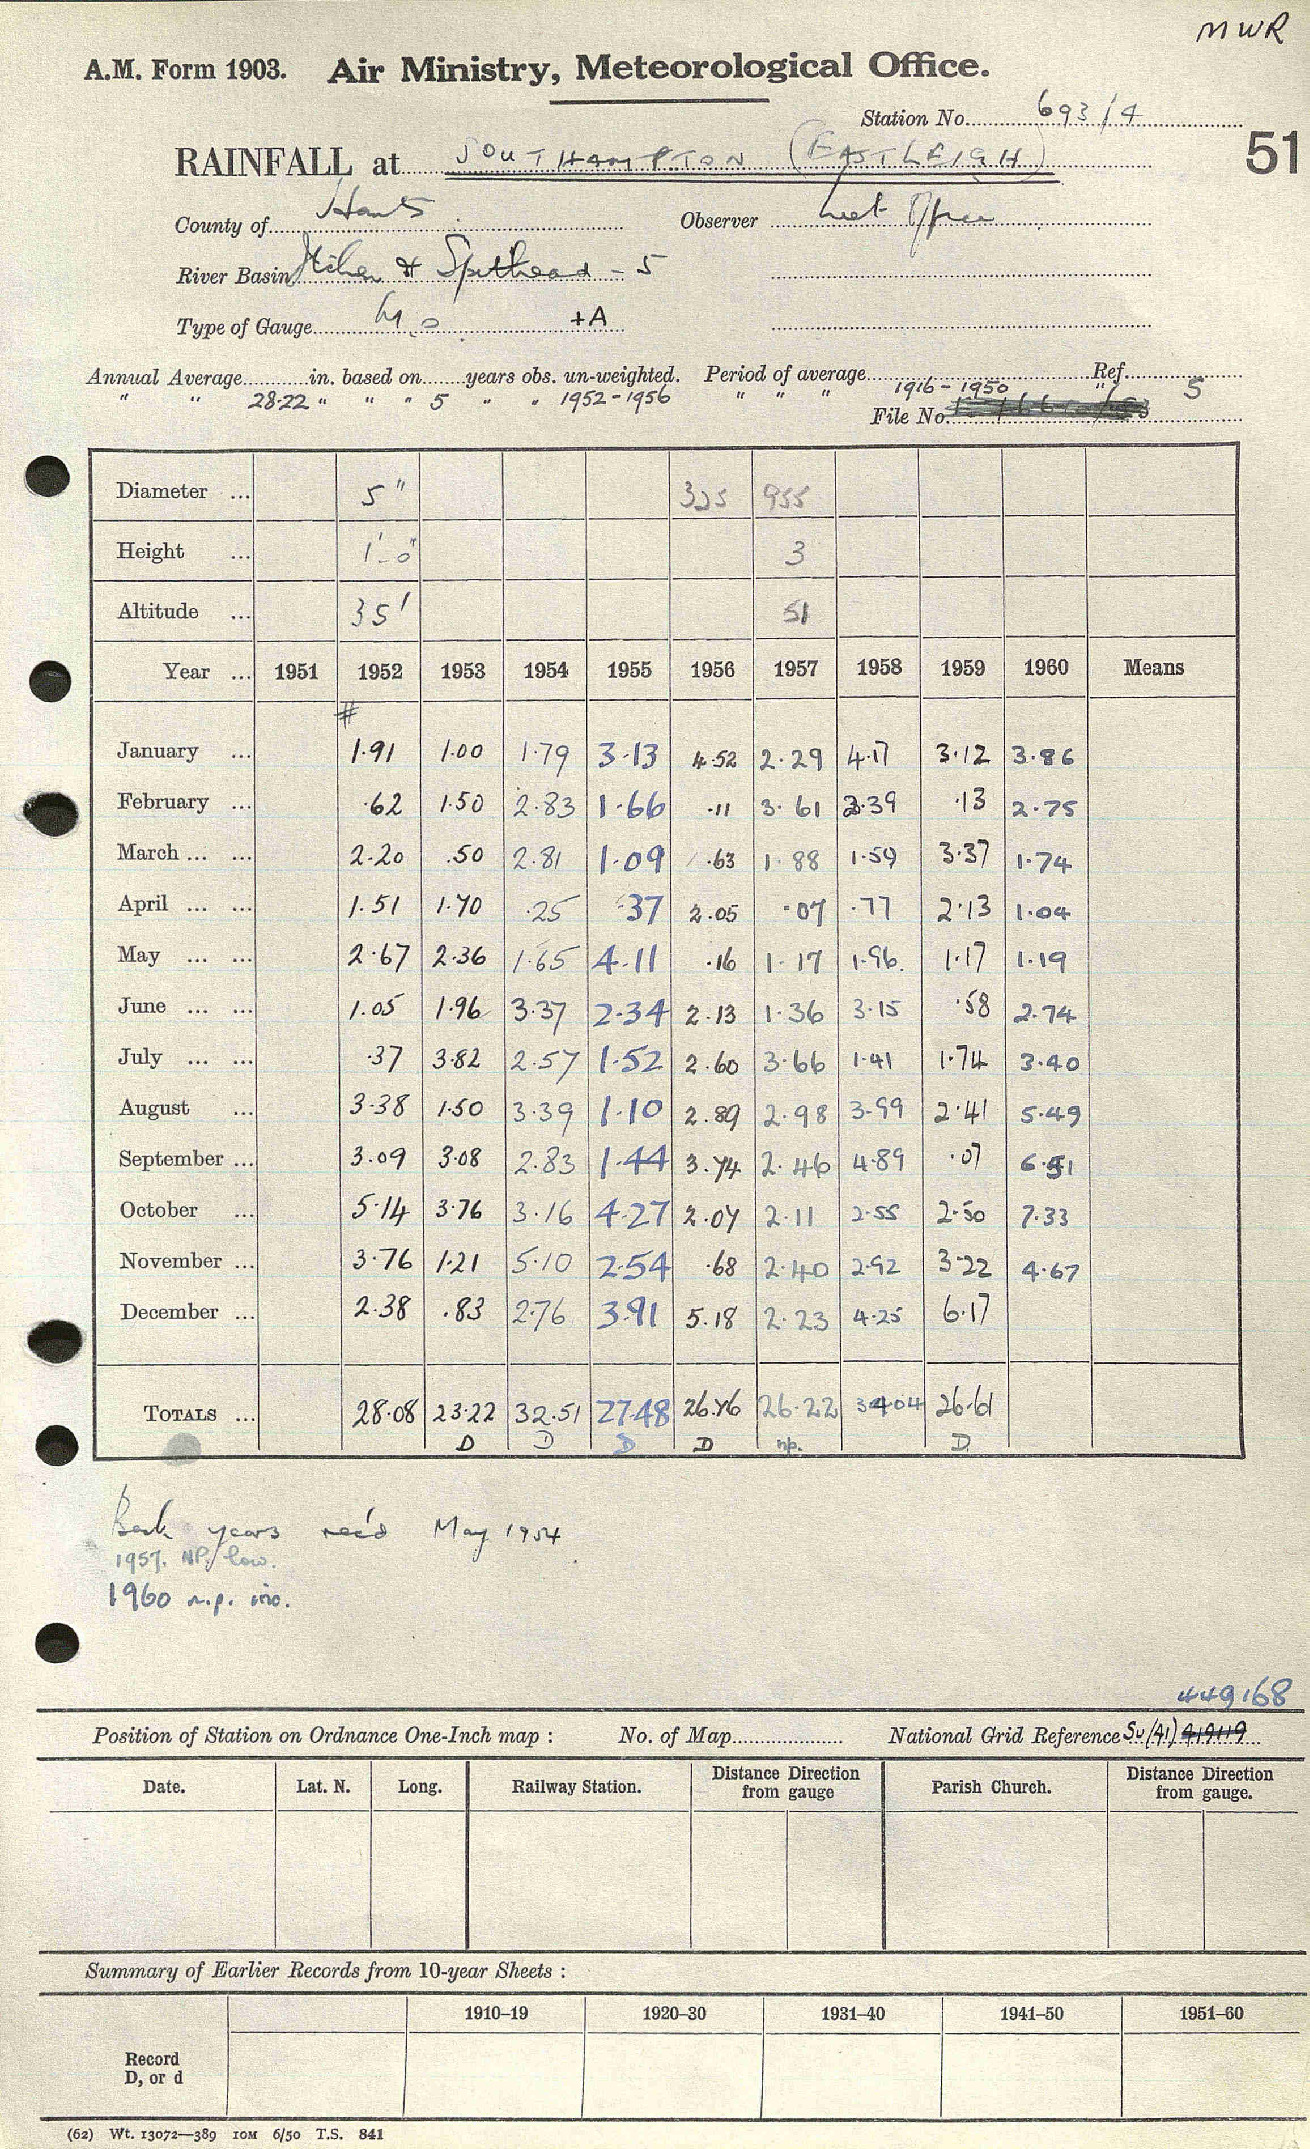 MWR
A.M. Form 1903. Air Ministry, Meteorological Office.
Station No. 693/4
51
RAINFALL at SOUTHAMPTON (EASTLEIGH)
County of Hants Observer Met Office
River Basin Itchen & Spithead - 5
Type of Gauge M.O +A
Annual Average in. based on years obs. un-weighted. Period of average Ref.
" " 28.22 " " " 5 " " 1952-1956 " " " 1916-1950 " 5
File No.
Diameter ... 5" 325 955
Height ... 1'-0" 3
Altitude ... 35' 51
Year ... 1951 1952 1953 1954 1955 1956 1957 1958 1959 1960 Means
#
January ... 1.91 1.00 1.79 3.13 4.52 2.29 4.17 3.12 3.86
February ... .62 1.50 2.83 1.66 .11 3.61 2.39 .13 2.75
March ... ... 2.20 .50 2.81 1.09 .63 1.88 1.59 3.37 1.74
April ... ... 1.51 1.70 .25 .37 2.05 .07 .77 2.13 1.04
May ... ... 2.67 2.36 1.65 4.11 .16 1.17 1.96 1.17 1.19
June ... ... 1.05 1.96 3.37 2.34 2.13 1.36 3.15 .58 2.74
July ... ... .37 3.82 2.57 1.52 2.60 3.66 1.41 1.74 3.40
August ... 3.38 1.50 3.39 1.10 2.89 2.98 3.99 2.41 5.49
September ... 3.09 3.08 2.83 1.44 3.74 2.46 4.89 .07 6.51
October ... 5.14 3.76 3.16 4.27 2.07 2.11 2.55 2.50 7.33
November ... 3.76 1.21 5.10 2.54 .68 2.40 2.92 3.22 4.67
December ... 2.38 .83 2.76 3.91 5.18 2.23 4.25 6.17
TOTALS ... 28.08 23.22 32.51 27.48 26.76 26.22 34.04 26.61
D D D D np. D
Back years rec'd May 1954
1957. NP/low.
1960 n.p. inc.
449168
Position of Station on Ordnance One-Inch map : No. of Map National Grid Reference SU (41) 419119
Date. Lat. N. Long. Railway Station. Distance Direction from gauge Parish Church. Distance Direction from gauge.
Summary of Earlier Records from 10-year Sheets :
1910–19 1920–30 1931–40 1941–50 1951–60
Record
D, or d
(62) Wt. 13072—389 10M 6/50 T.S. 841